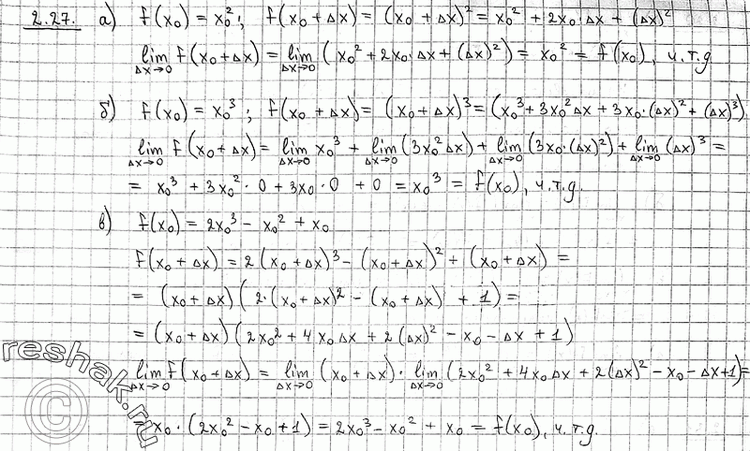 2.27. а) f(x₀) = x₀²; f(x₀ + Δx) = (x₀ + Δx)² = x₀² + 2x₀·Δx + (Δx)²
lim_{Δx→0} f(x₀ + Δx) = lim_{Δx→0} (x₀² + 2x₀·Δx + (Δx)²) = x₀² = f(x₀), ч.т.д
б) f(x₀) = x₀³; f(x₀ + Δx) = (x₀ + Δx)³ = (x₀³ + 3x₀²Δx + 3x₀·(Δx)² + (Δx)³)
lim_{Δx→0} f(x₀ + Δx) = lim_{Δx→0} x₀³ + lim_{Δx→0} (3x₀²Δx) + lim_{Δx→0} (3x₀·(Δx)²) + lim_{Δx→0} (Δx)³ =
= x₀³ + 3x₀²·0 + 3x₀·0 + 0 = x₀³ = f(x₀), ч.т.д.
в) f(x₀) = 2x₀³ - x₀² + x₀
f(x₀ + Δx) = 2(x₀ + Δx)³ - (x₀ + Δx)² + (x₀ + Δx) =
= (x₀ + Δx)(2·(x₀ + Δx)² - (x₀ + Δx) + 1) =
= (x₀ + Δx)(2x₀² + 4x₀Δx + 2(Δx)² - x₀ - Δx + 1)
lim_{Δx→0} f(x₀ + Δx) = lim_{Δx→0} (x₀ + Δx) · lim_{Δx→0} (2x₀² + 4x₀Δx + 2(Δx)² - x₀ - Δx + 1) =
= x₀·(2x₀² - x₀ + 1) = 2x₀³ - x₀² + x₀ = f(x₀), ч.т.д.
reshak.ru
©